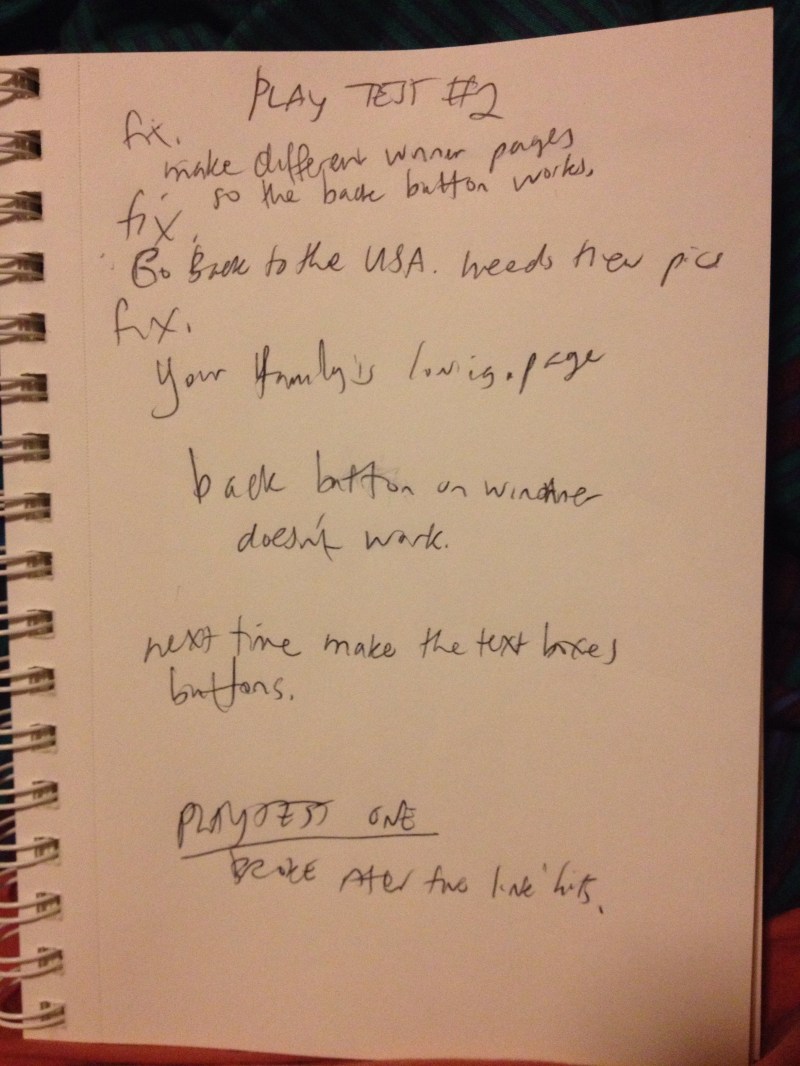 PLAY TEST #2
fix.
make different winner pages
so the back button works.
fix.
Go Back to the USA. needs new pics
fix.
Your family's page
back button on winner
doesn't work.
next time make the text boxes
buttons.
PLAYTEST ONE
BROKE After two link hits.